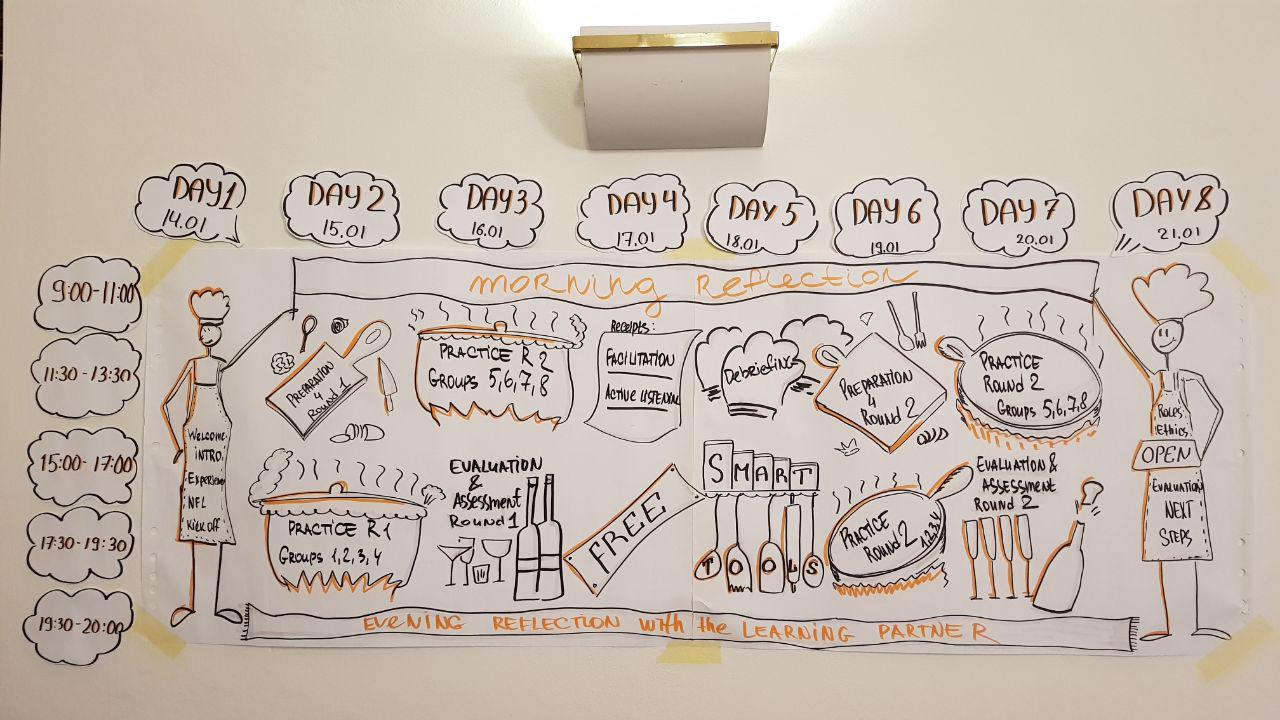 DAY1
14.01
DAY 2
15.01
DAY3
16.01
DAY4
17.01
DAY 5
18.01
DAY 6
19.01
DAY 7
20.01
DAY 8
21.01
9:00-11:00
11:30-13:30
15:00-17:00
17:30-19:30
19:30-20:00
morning Reflection
Welcome
INTRO.
NFL
Kick off
PREPARATION
4
Round 1
PRACTICE R1
GROUPS 1,2,3,4
PRACTICE R2
GROUPS 5,6,7,8
EVALUATION
&
Assessment
Round 1
Receipts:
FACILITATION
ACTIVE LISTENING
FREE
Debriefing
SMART
TOOLS
PREPARATION
4
Round 2
PRACTICE
Round 2
1,2,3,4
PRACTICE
Round 2
Groups 5,6,7,8
EVALUATION &
ASSESSMENT
Round 2
Roles
Ethics
OPEN
EVALUATION
NEXT
STEPS
EVENING REFLECTION with the LEARNING PARTNER